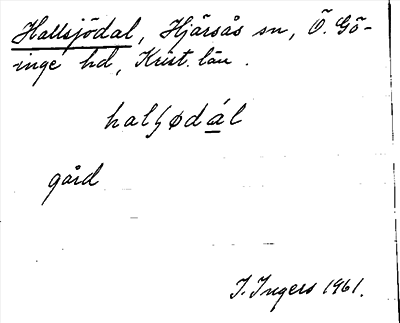 Hallsjödal, Hjärsås sn, Ö. Gö-
inge hd, Krist. län.
halʃødál
gård
I. Ingers 1961.